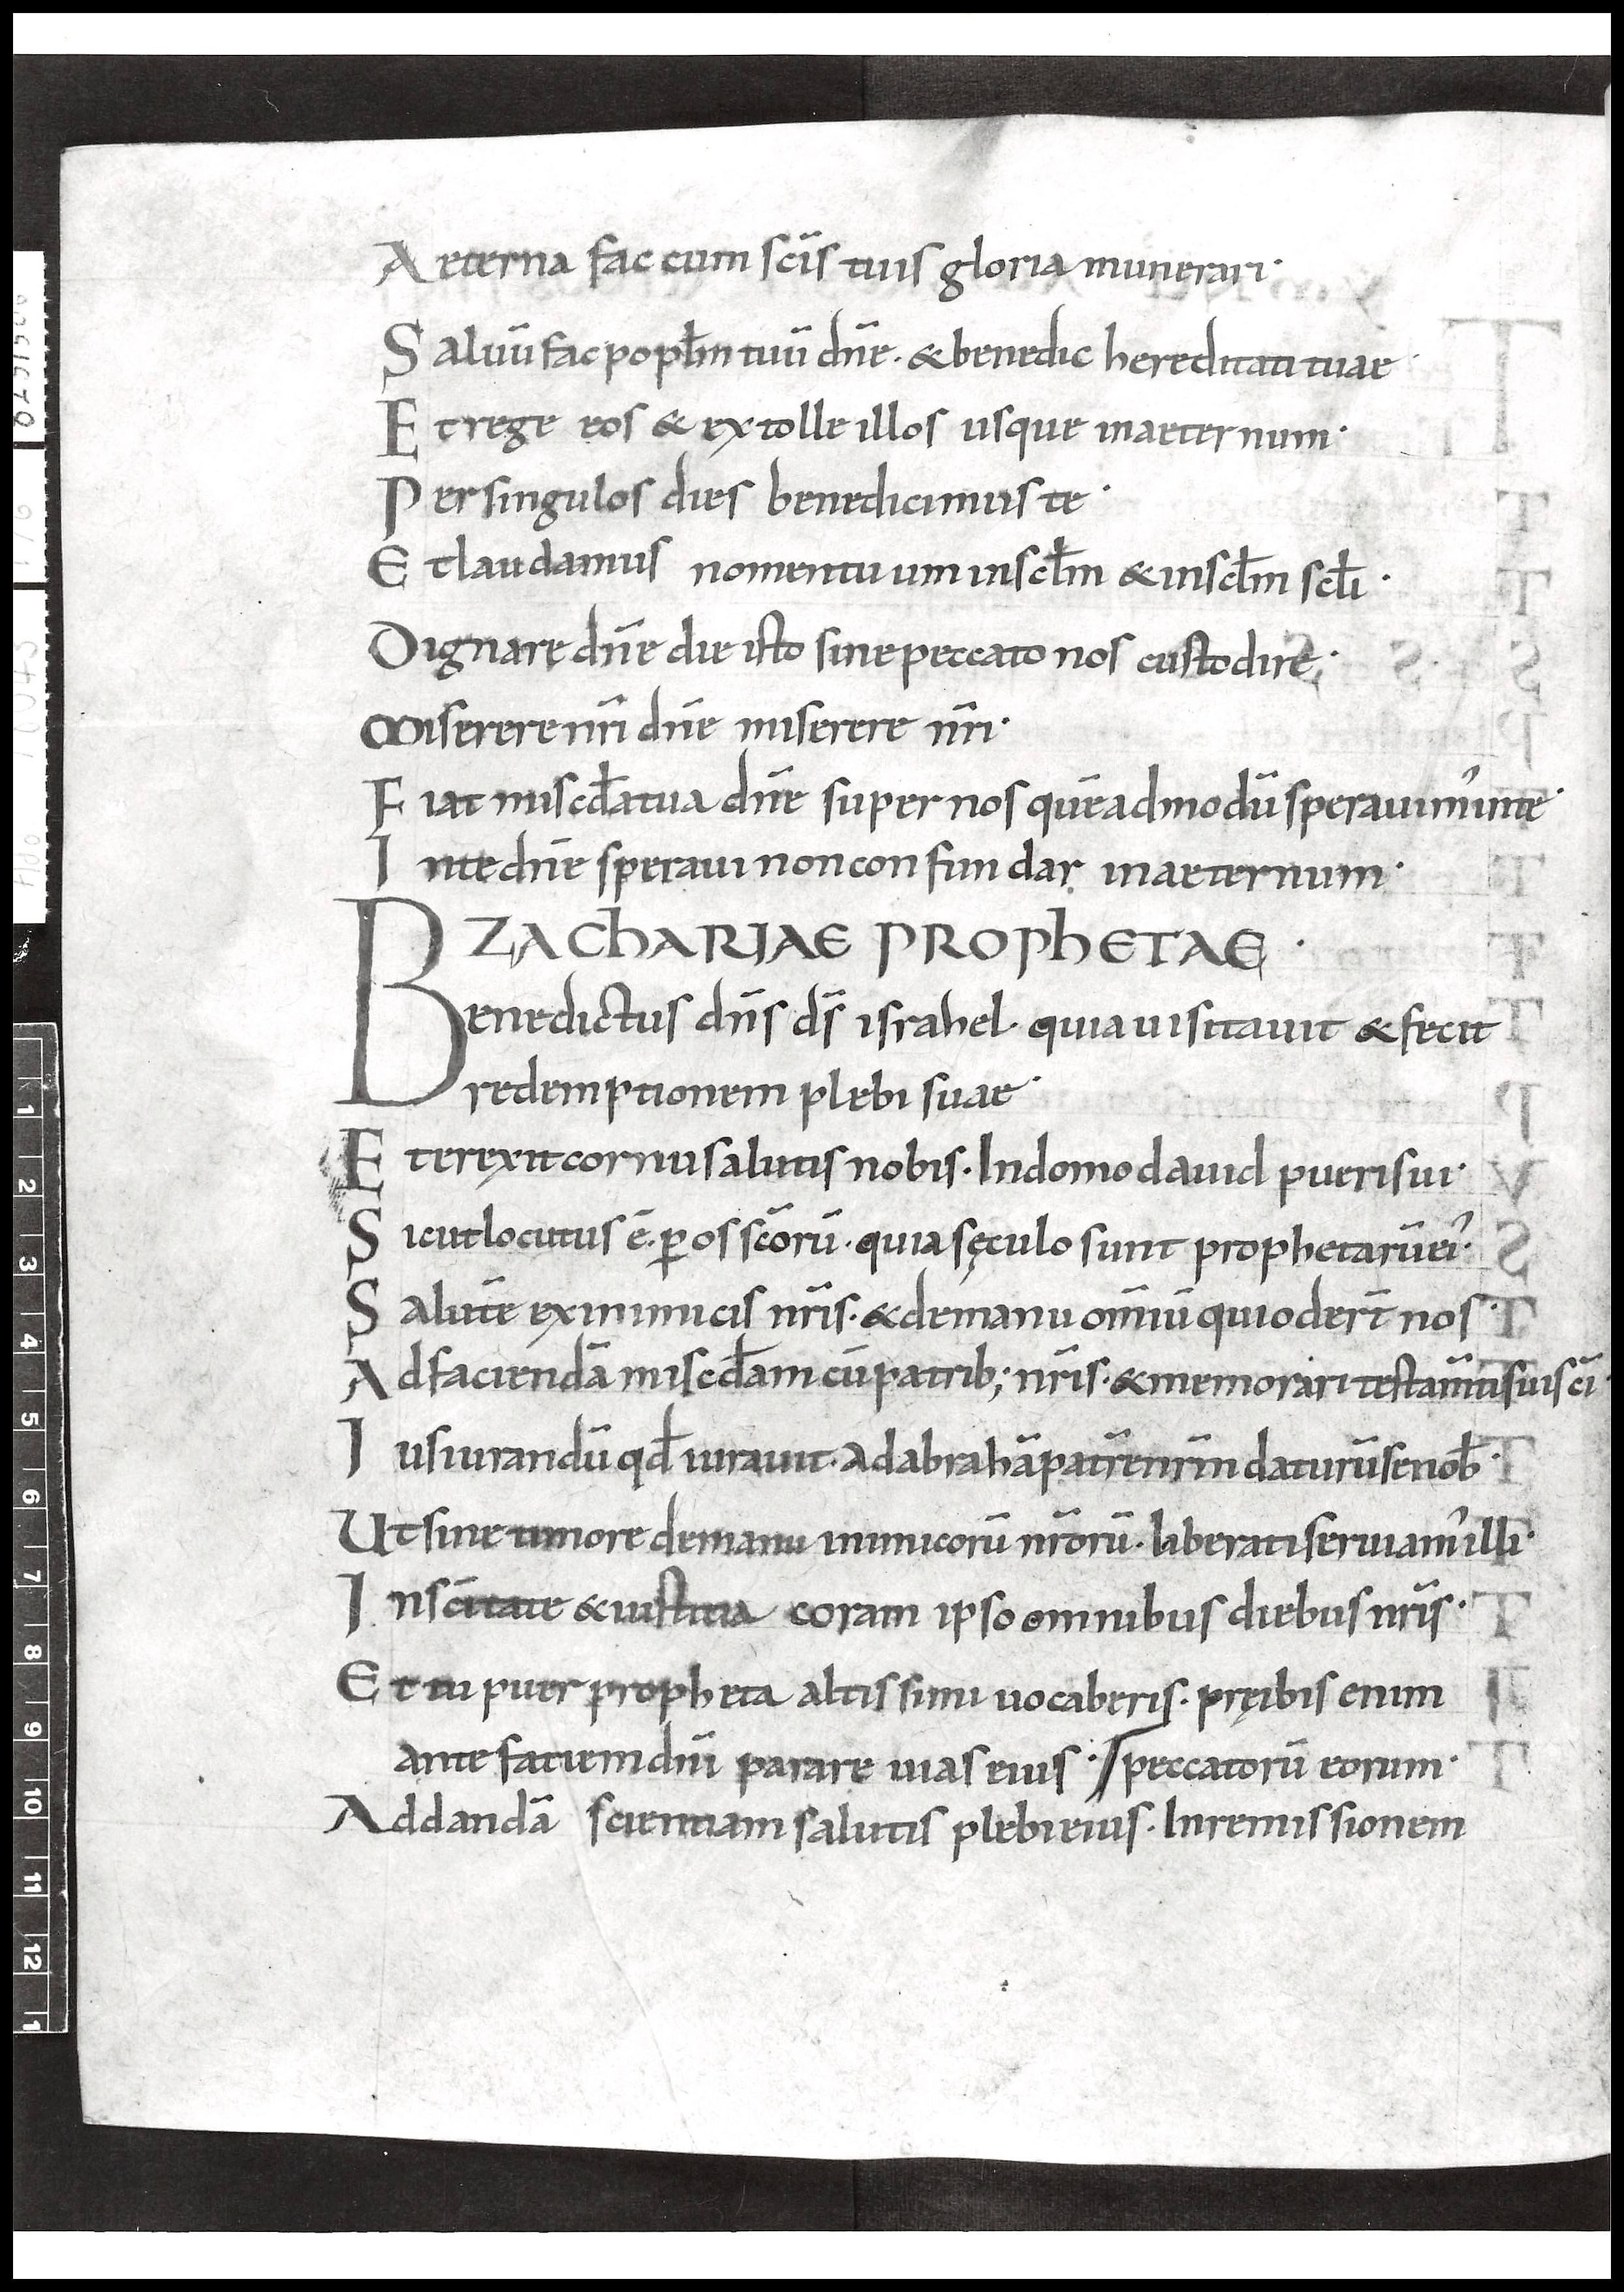 Aeterna fac cum scīs tuis gloria munerari·
Saluū fac popl̄m tuū dn̄e· & benedic hereditati tuae·
Et rege eos & extolle illos usque inaeternum·
Per singulos dies benedicimus te·
Et laudamus nomen tuum inscl̄m & inscl̄m scl̄i·
Dignare dn̄e die isto sine peccato nos custodire·
Miserere nr̄i dn̄e miserere nr̄i·
Fiat miscd̄a tua dn̄e super nos quēadmodū sperauim᾽ inte·
Inte dn̄e speraui non confundar inaeternum·
ZAChARIAE PROPhETAE·
Benedictus dn̄s ds̄ israhel· quia uisitauit & fecit
redemptionem plebi suae·
Et erexit cornu salutis nobis· In domo dauid pueri sui·
Sicut locutus ē· ꝑ os scōrū· qui a sęculo sunt prophetarū ei᾽·
Salutē ex inimicis nr̄is· & de manu om̄iū qui oder̄t nos·
Ad faciendā miscd̄am cū patrib; nr̄is· & memorari testam̄ti sui sc̄i·
Iusiurandū qd̄ iurauit· ad abrahā patrē nr̄m daturū se nob̄·
Ut sine timore de manu inimicorū nr̄orū· liberati seruiam᾽ illi·
In sc̄itate & iustitia coram ipso omnibus diebus nr̄is·
Et tu puer propheta altissimi uocaberis· pręibis enim
ante faciem dn̄i parare uias eius·/ peccatorū eorum·
Ad dandā scientiam salutis plebi eius· In remissionem
1
2
3
4
5
6
7
8
9
10
11
12
1